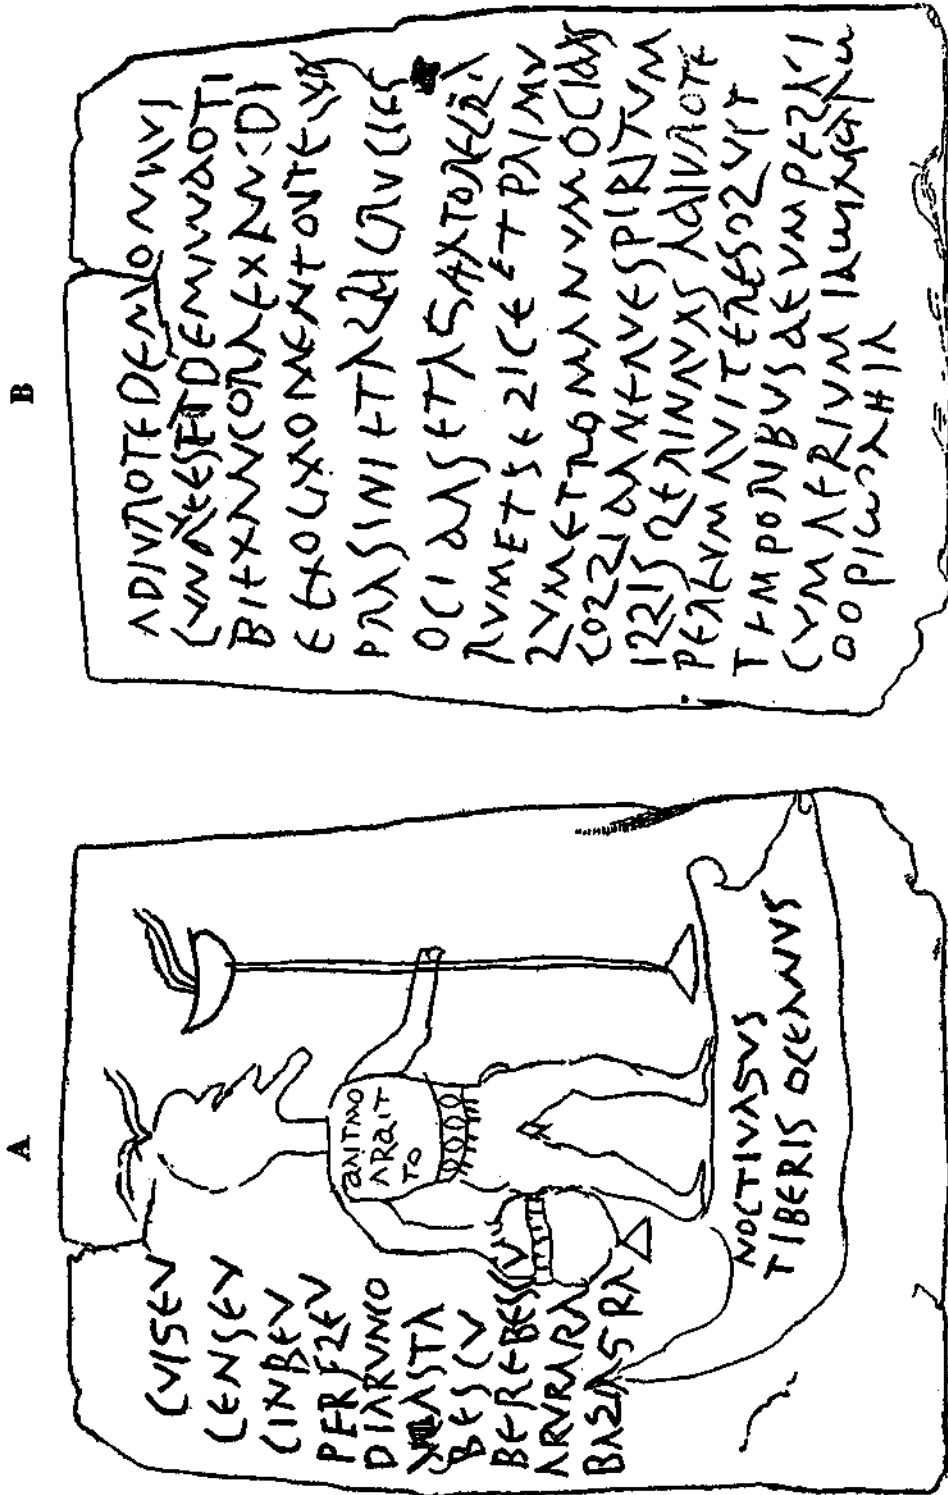 A
CVIGEV
CENSEV
CINBEV
PERFLEV
DIARVNCO
DEASTA
BESCV
BEREBESCV
ARVRARA
BAZAGRA
ANTMO
ARAIT
TO
NOCTIVAGVS
TIBERIS OCEANVS
B
ADIVROTEDEMONQVI
CVNQVEESETDEMANDOTI
BIEXANCORAEXANCDI
EEXOCMOMENTOVTEQVOS
PRASINIETALBICRVCIES
OCIDASETAGITATORECLA
RVMETFELICEETPRIMV
LVMETROMANVMOCIDAS
COLLIDANEQVESPIRITVM
ILLISLERINQVASADIVROTE
PEREVMQVITERESOLVIT
TEMPORIBVSDEVMPELAGI
CVMAERIVM ΙΑΩ
ΑΗΙΑ